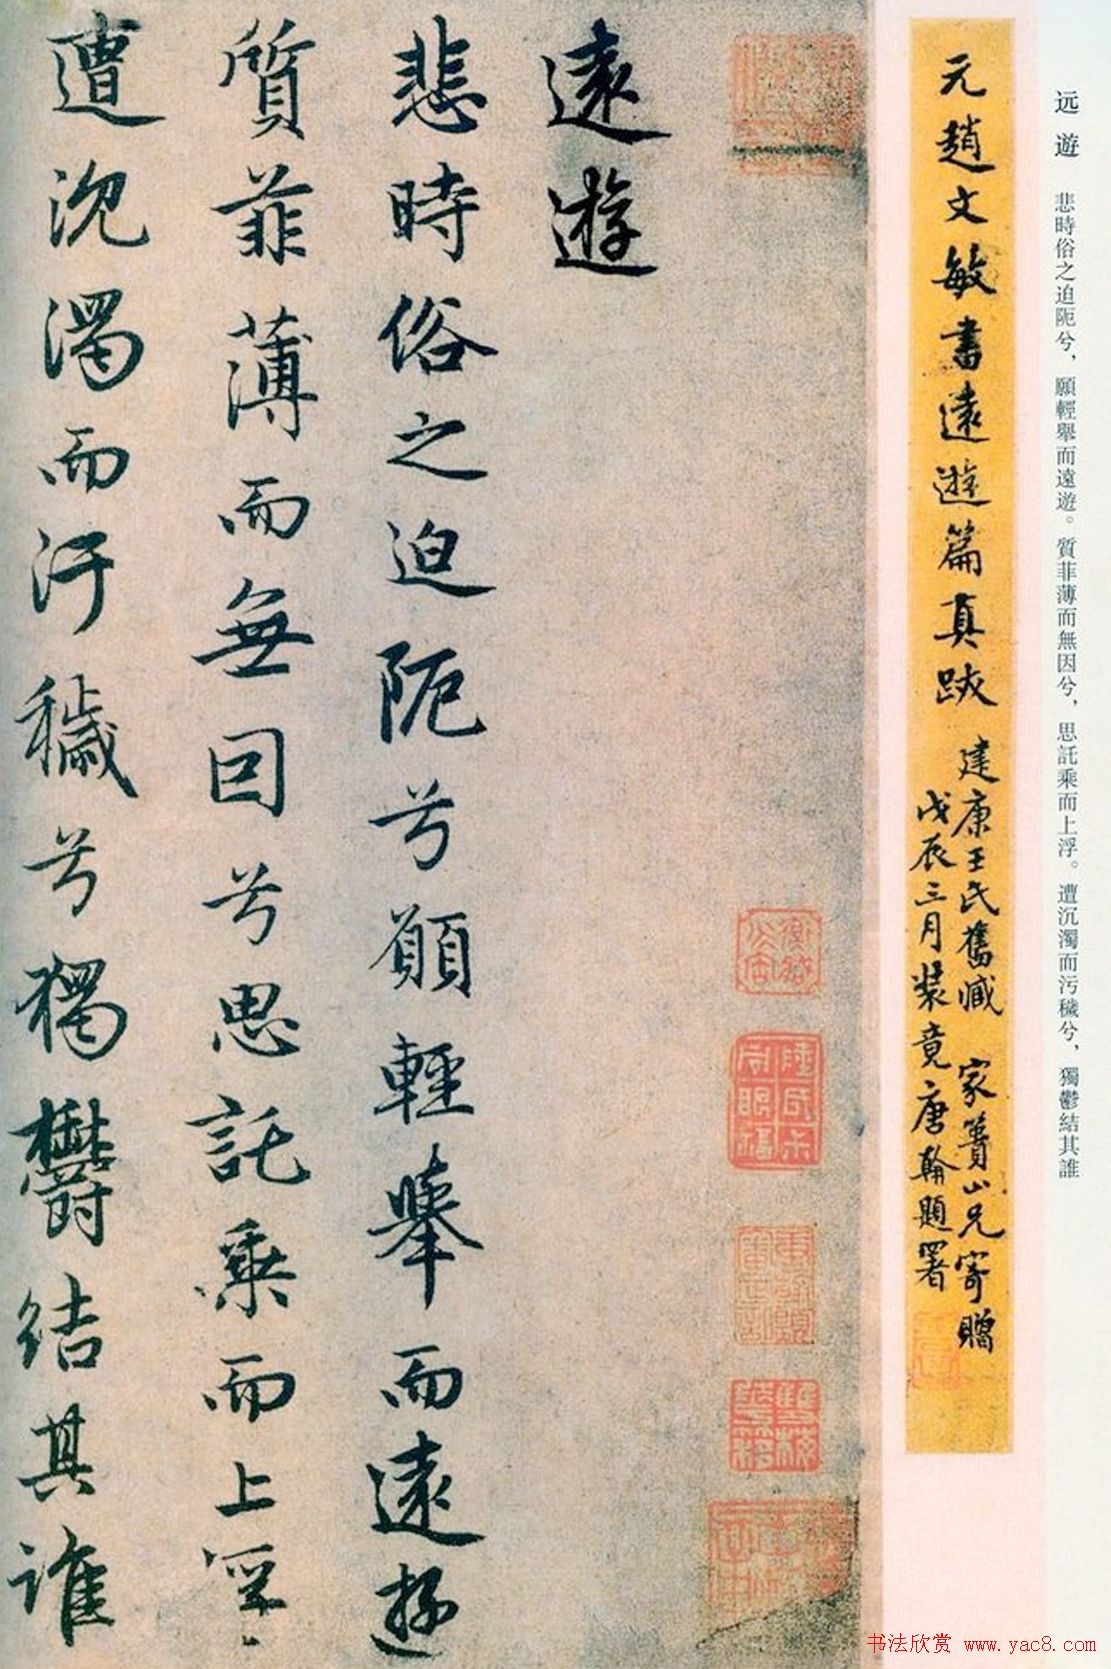 远遊
悲時俗之迫阨兮，願輕舉而遠遊。質菲薄而無因兮，思託乘而上浮。遭沉濁而污穢兮，獨鬱結其誰
元趙文敏書遠遊篇真跡
建康王氏舊藏 家篔山兄寄贈
戊辰三月裝竟唐翰題署
遠遊
悲時俗之迫阨兮願輕舉而遠遊
質菲薄而無因兮思託乘而上浮
遭沉濁而汙穢兮獨鬱結其誰
书法欣赏 www.yac8.com